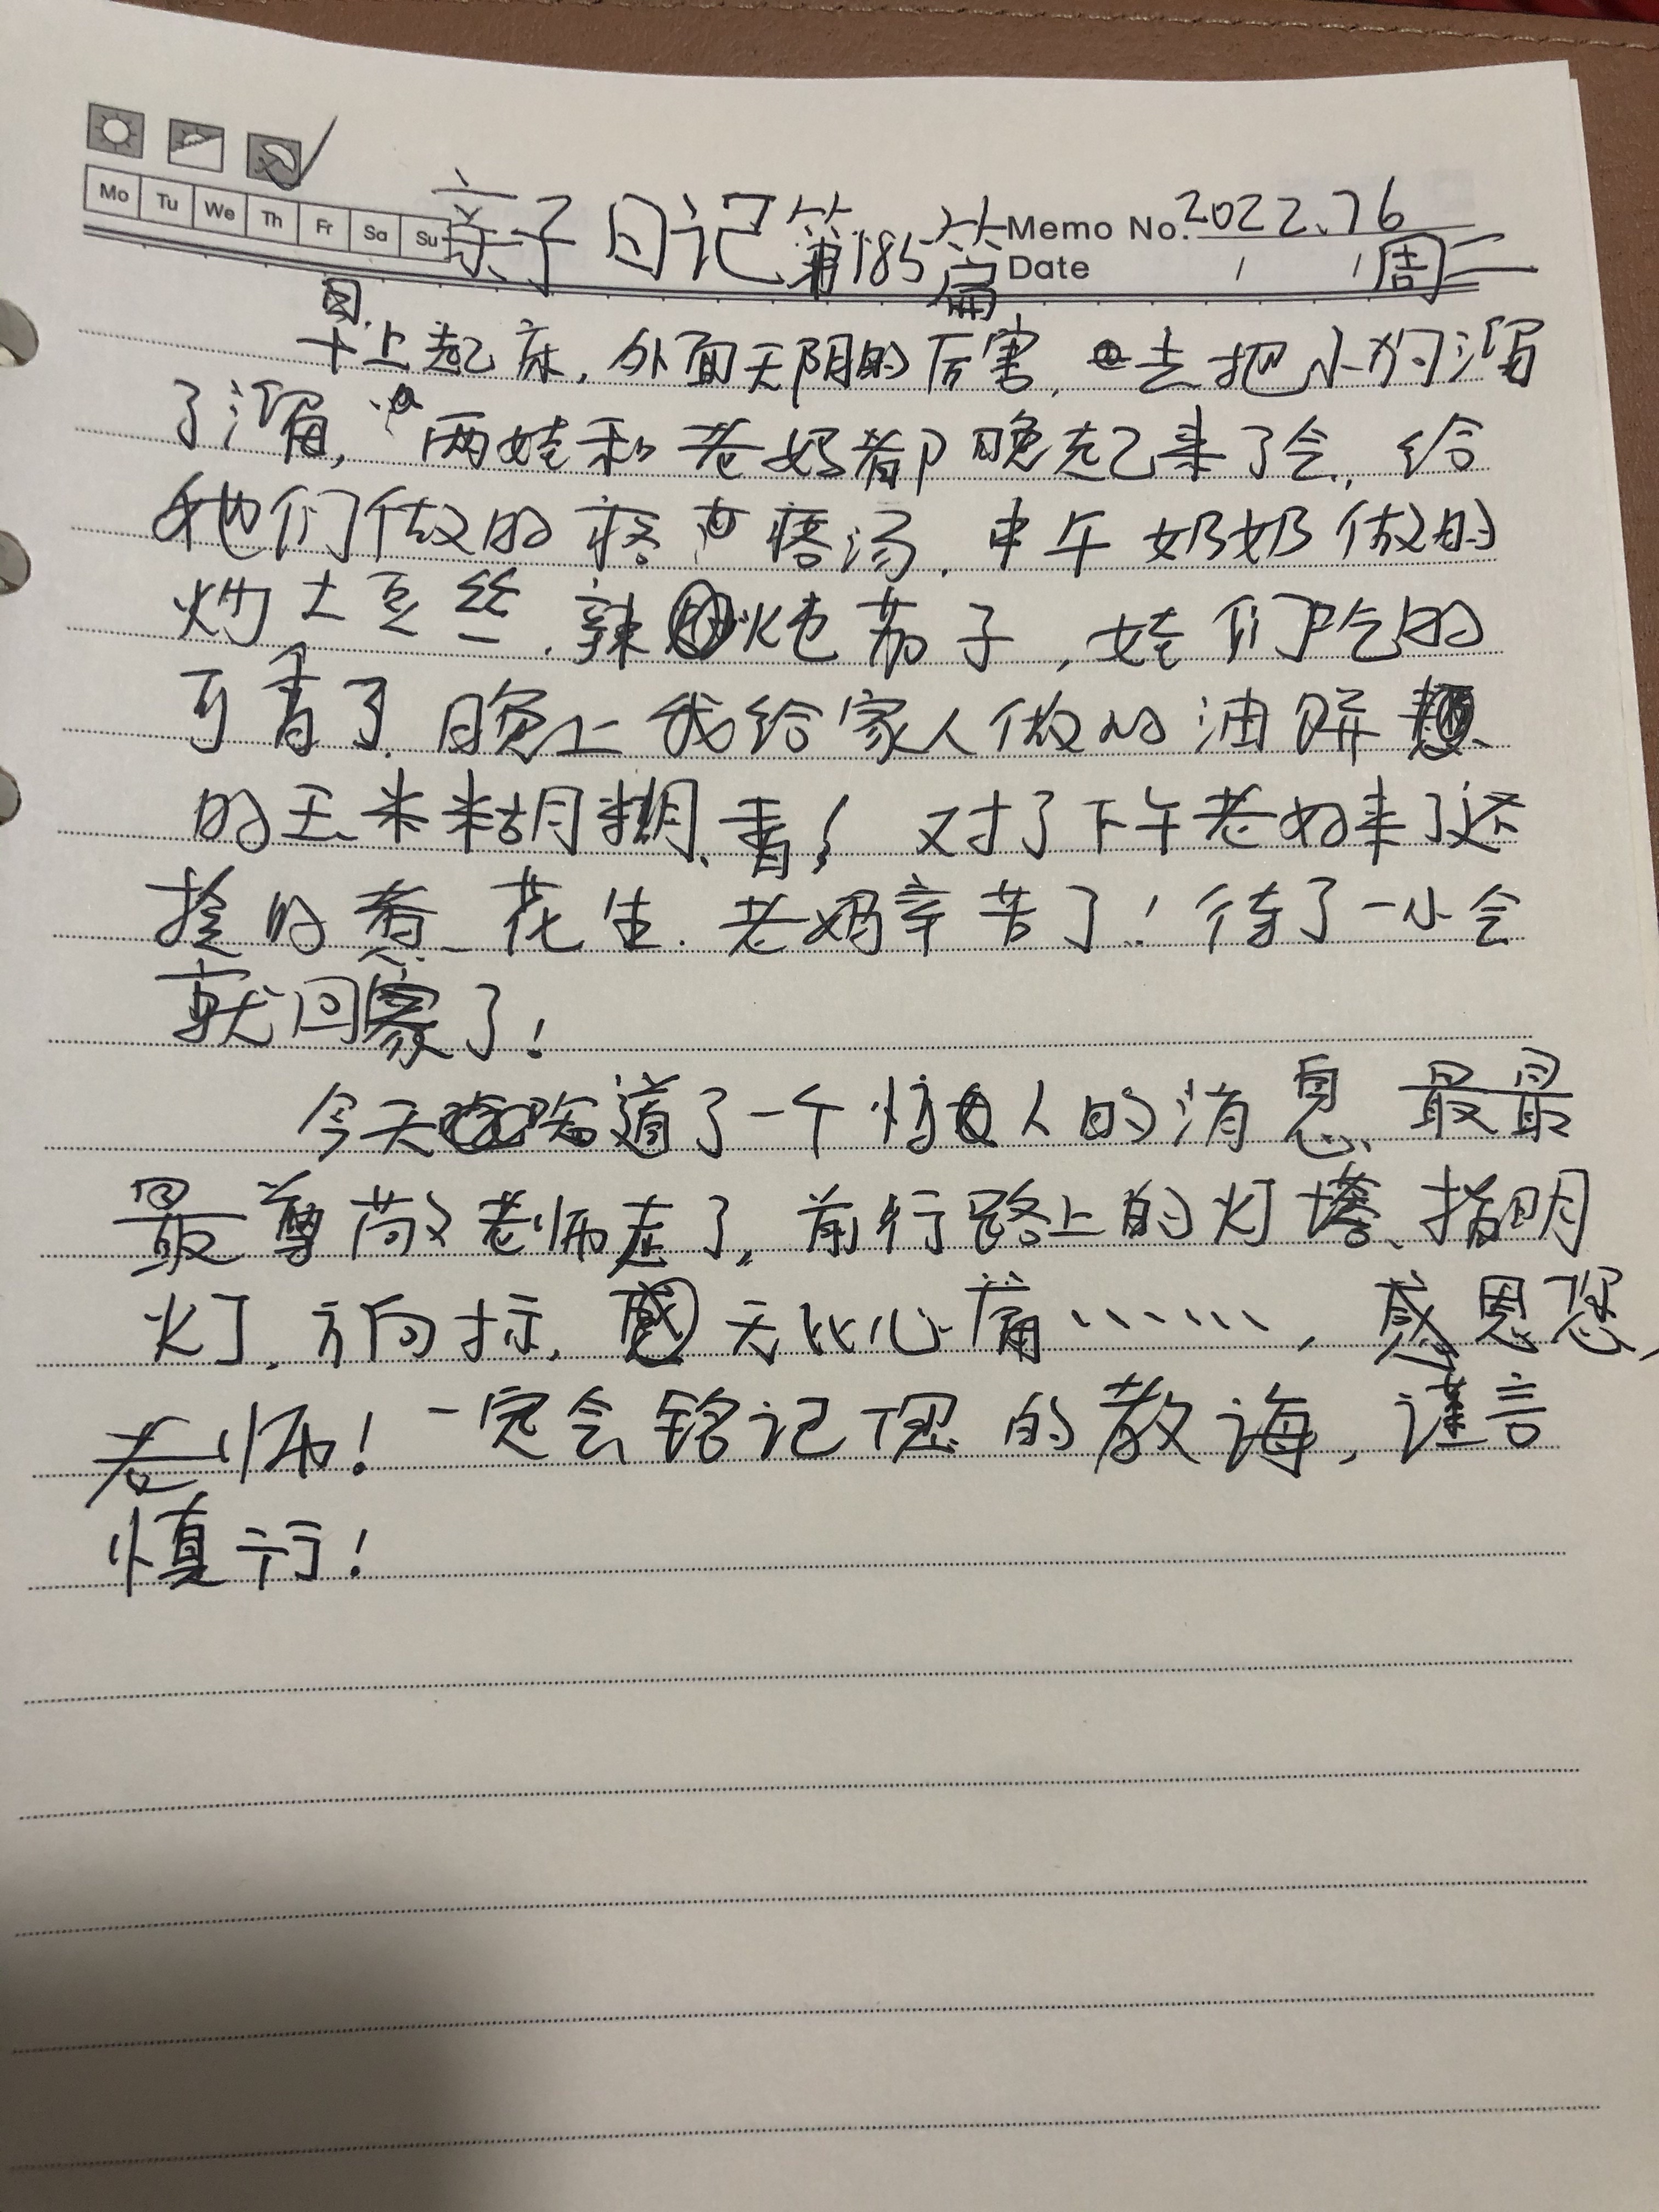 Mo Tu We Th Fr Sa Su
亲子日记第185篇 Memo No. 2022.7 6
Date / / 周二
早上起床,外面天阴的厉害,去把小狗溜
了溜,两娃和老奶都晚起来了会,给
他们做的疙瘩汤.中午奶奶做的
炒土豆丝.辣炮茄子,娃们吃的
可香了.晚上我给家人做的油饼
的玉米粘糊糊、香!对了下午老妈来了还
拴的煮花生.老妈辛苦了!待了一小会
就回家了!
今天知道了一个惊人的消息、最最
最尊敬老师走了,前行路上的灯塔、指明
灯,方向标,无比心痛……,感恩您,
老师!一定会铭记您的教诲,谨言
慎行!